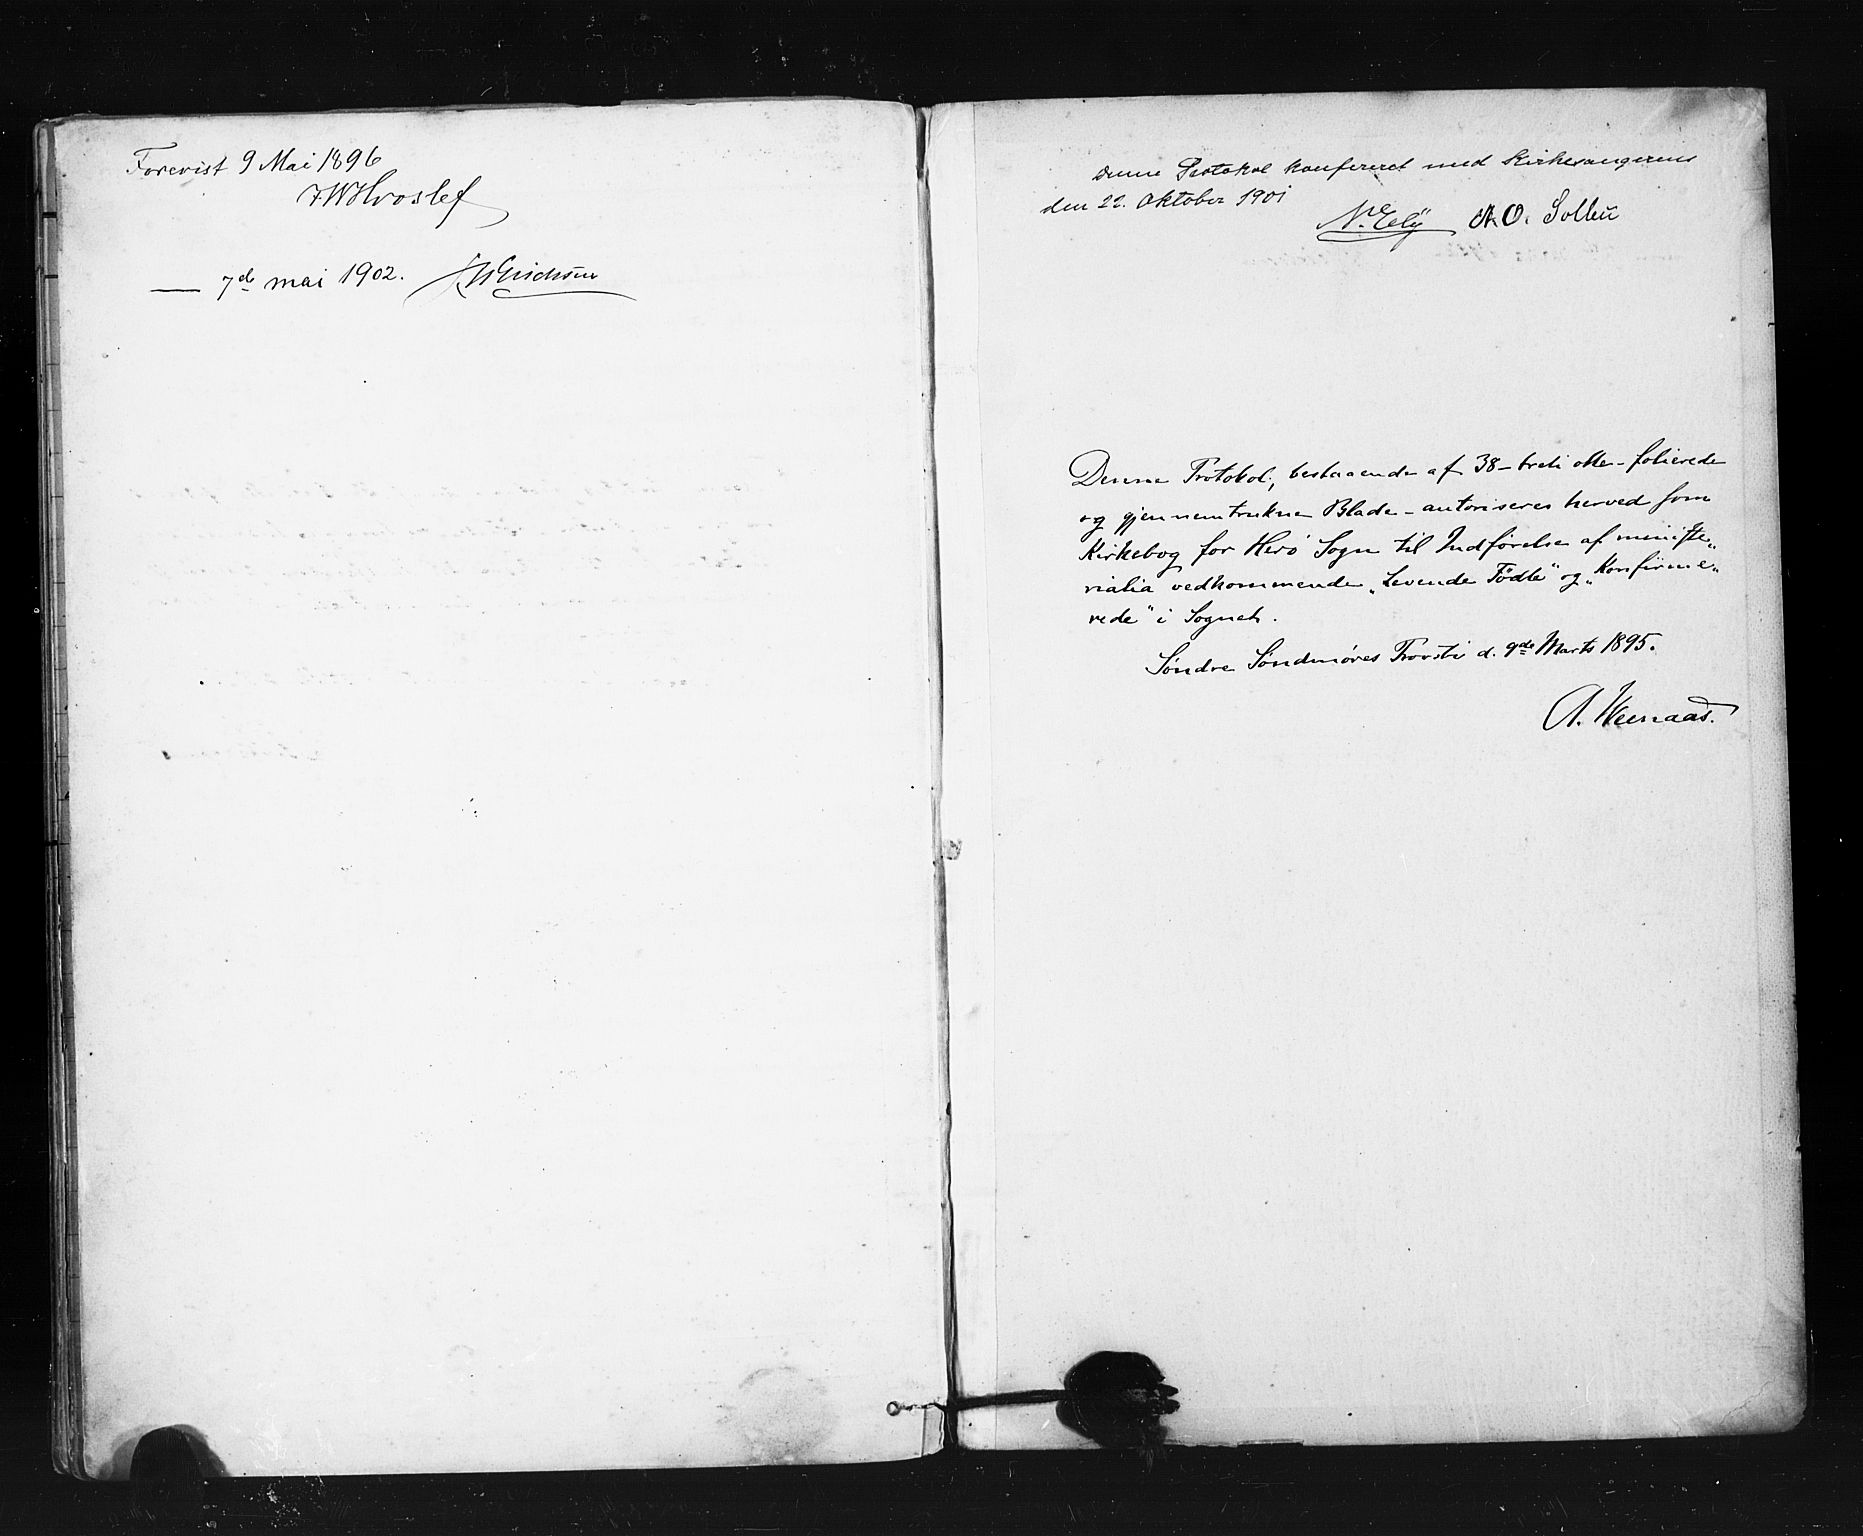 Forevist 9 Mai 1896
J.W Hvoslef
— 7de mai 1902. Erichsen
Denne Protokol konfereret med Kirkesangerens
den 22. Oktober 1901
A O. Solbu
Denne Protokol, bestaaende af 38 – treti otte – folierede
og gjennemtrukne Blade – autoriseres herved som
Kirkebog for Herö Sogn til Indførelse af ministe„
rialia vedkommende „Levende Födte" og „Konfirme„
rede" i Sognet.
Søndre Søndmøres Provsti d. 9de Marts 1895.
A. Weenaas.